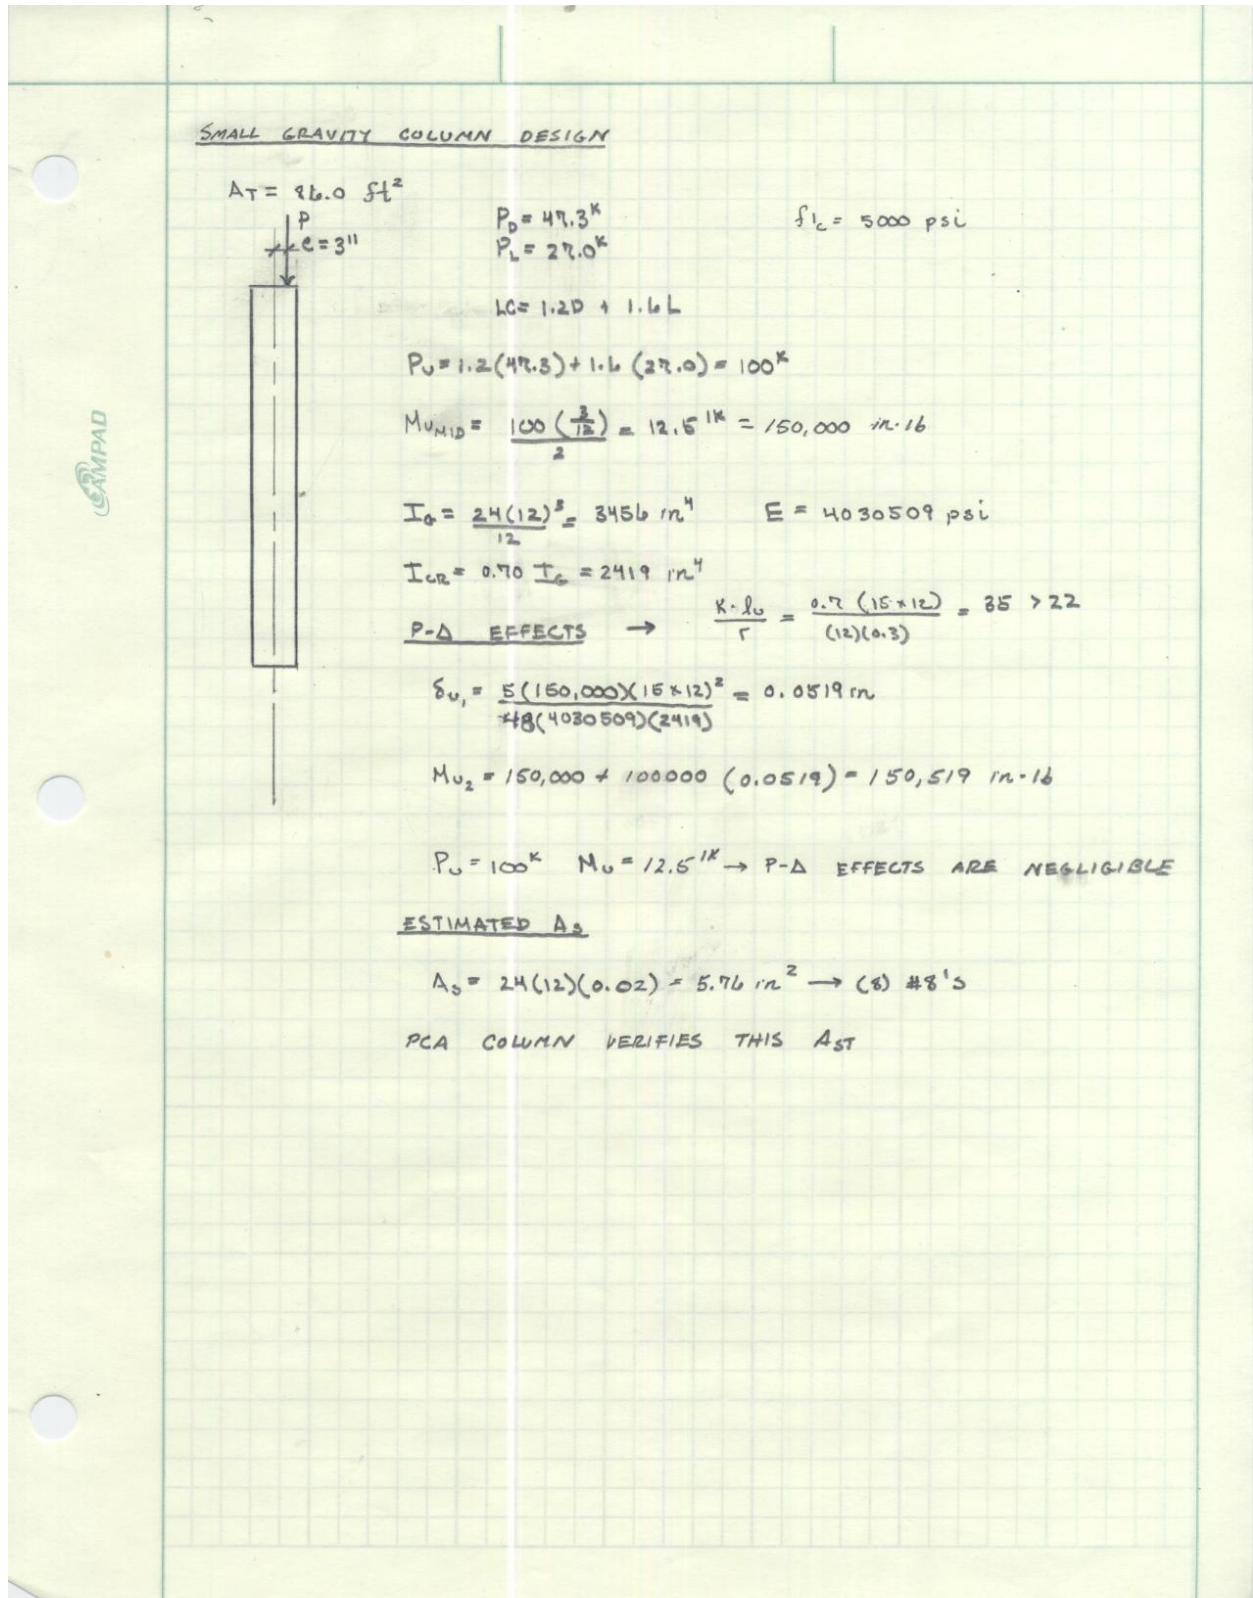 SMALL GRAVITY COLUMN DESIGN
A_T = 86.0 ft²
P
e = 3"
P_D = 47.3^K
P_L = 27.0^K
f'c = 5000 psi
LC = 1.2D + 1.6L
P_U = 1.2(47.3) + 1.6(27.0) = 100^K
M_U_MID = 100(3/12)/2 = 12.5^'K = 150,000 in·lb
I_G = 24(12)³/12 = 3456 in⁴ E = 4030509 psi
I_CR = 0.70 I_G = 2419 in⁴
P-Δ EFFECTS → K·l_U/r = 0.7(15×12)/(12)(0.3) = 35 > 22
δ_U₁ = 5(150,000)(15×12)²/48(4030509)(2419) = 0.0519 in
M_U₂ = 150,000 + 100000 (0.0519) = 150,519 in·lb
P_U = 100^K M_U = 12.5^'K → P-Δ EFFECTS ARE NEGLIGIBLE
ESTIMATED A_S
A_S = 24(12)(0.02) = 5.76 in² → (8) #8's
PCA COLUMN VERIFIES THIS A_ST
CAMPAD